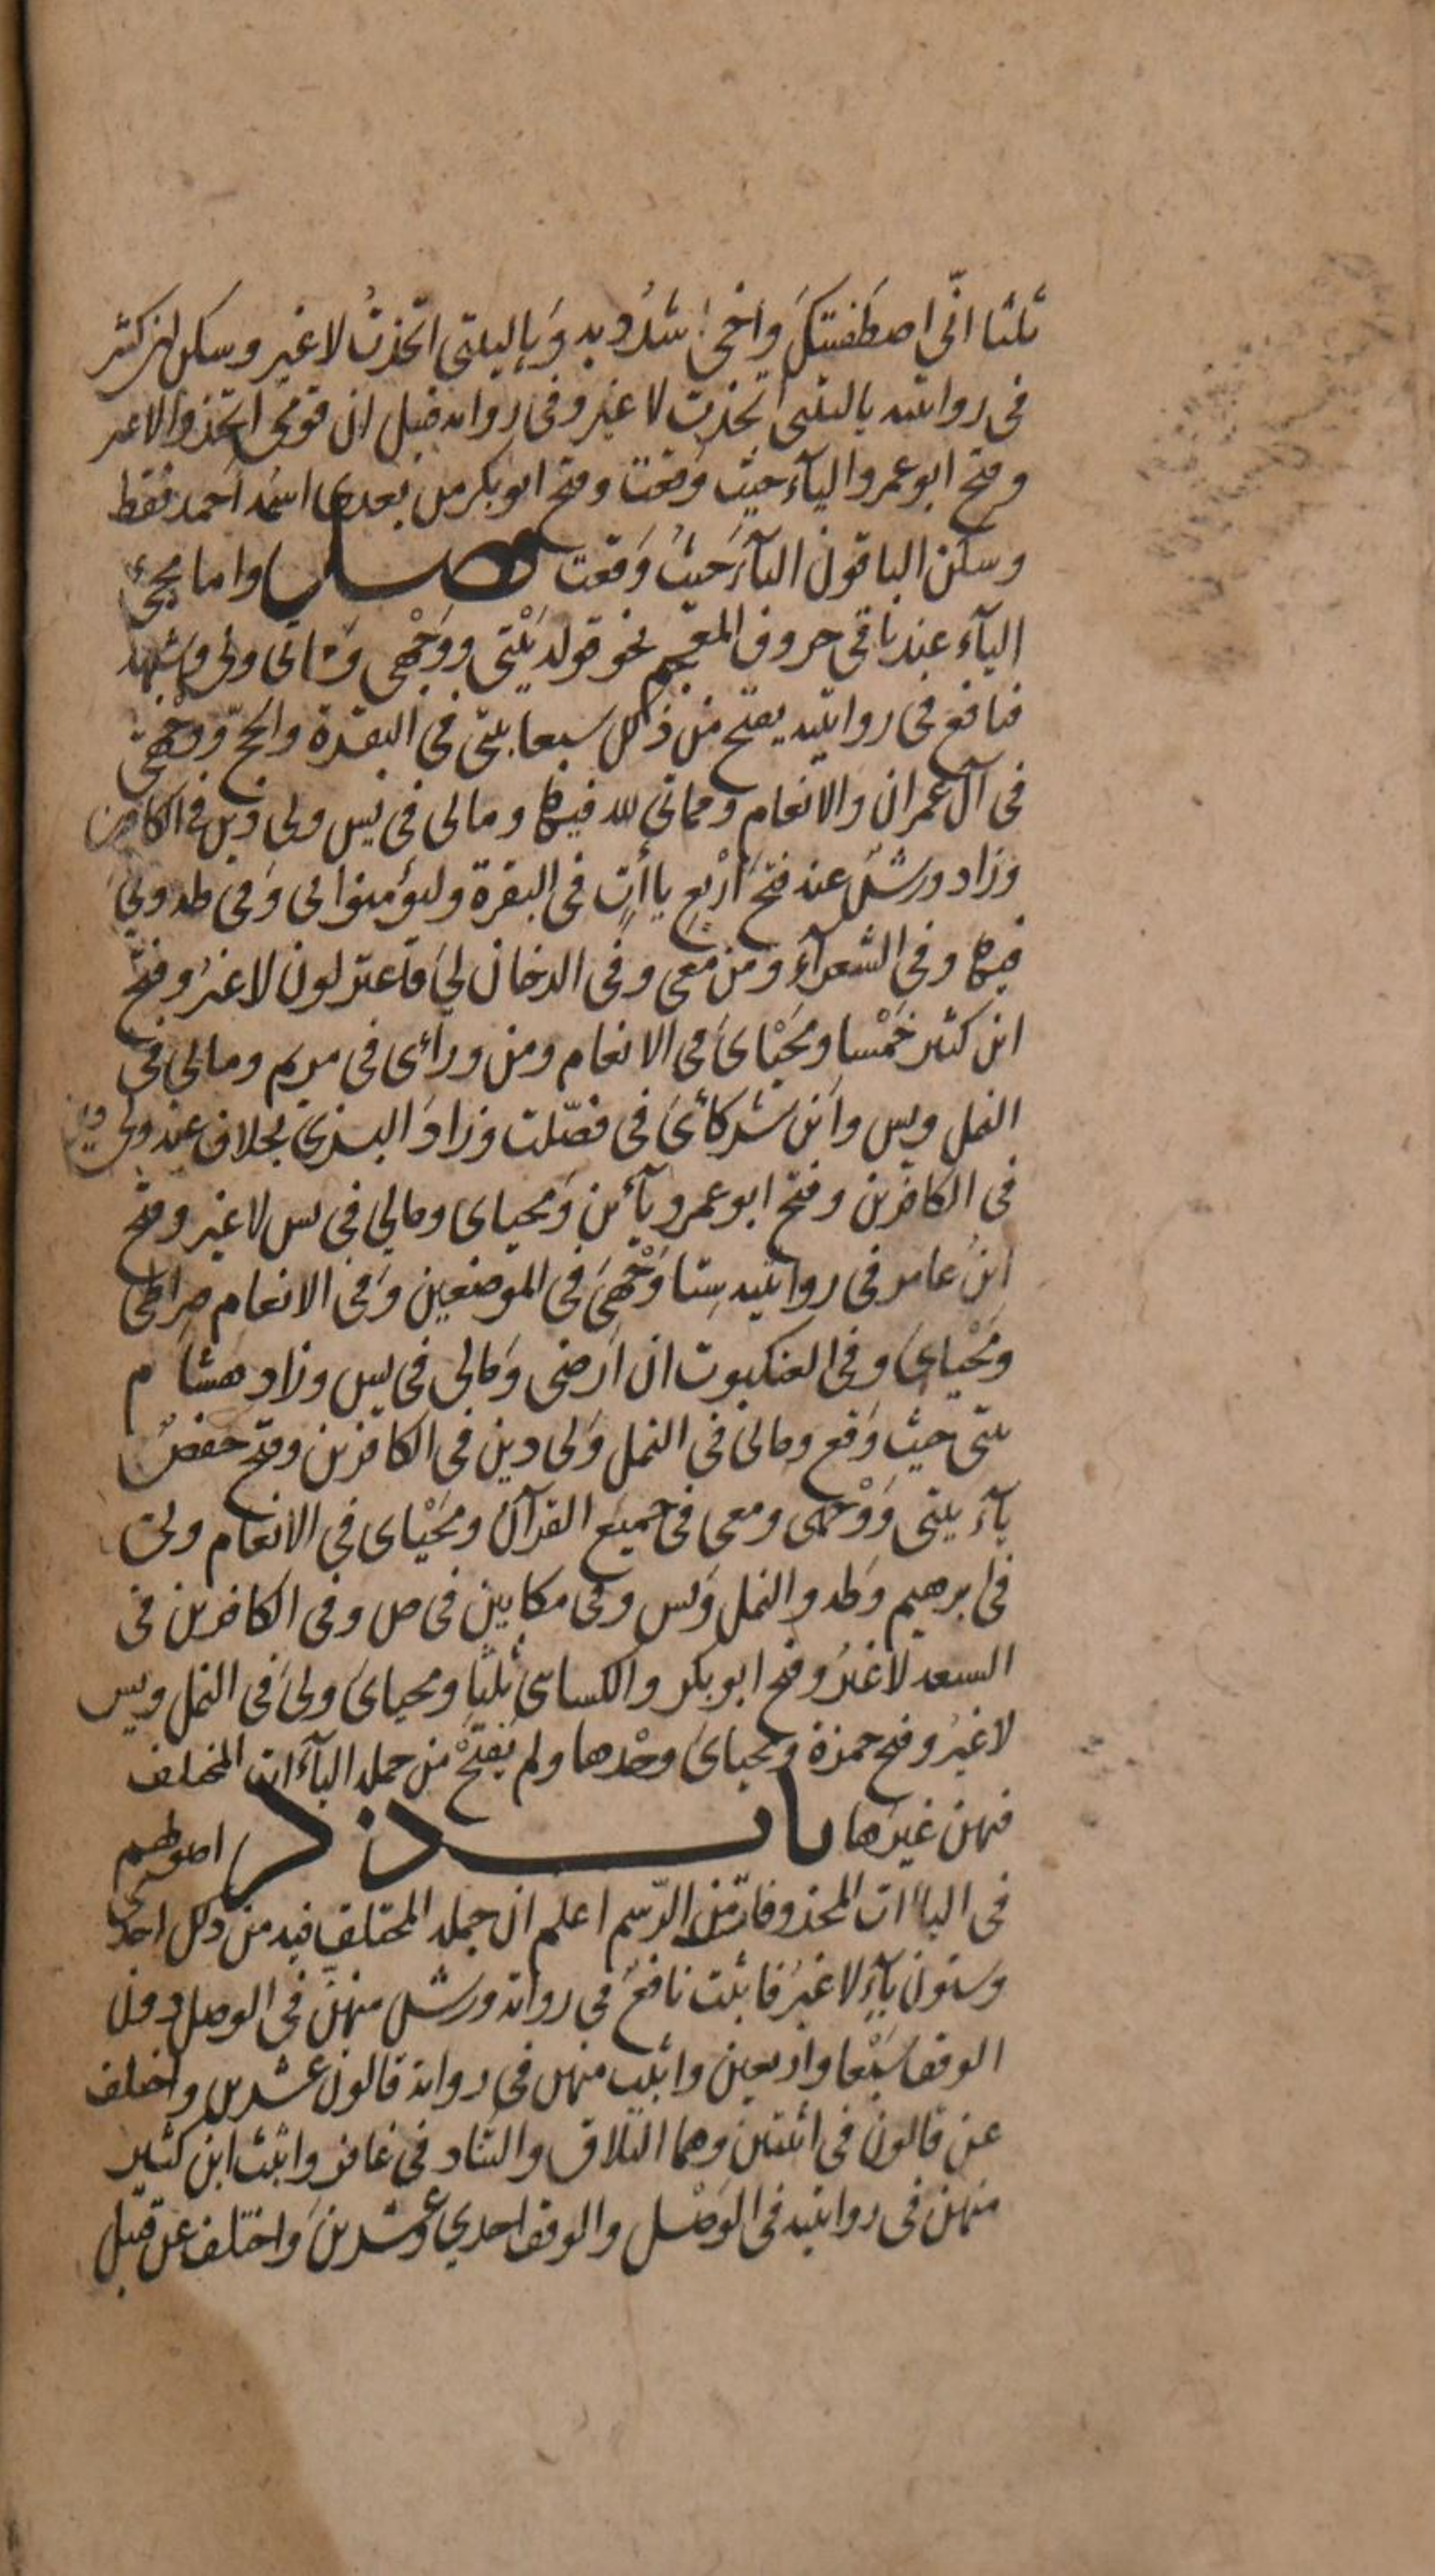 ثلثا انّى اصطفيتكَ واخى اشدُد به وَياليتنى اتخذتُ لا غير وسكن ابن كثير
فى روايتيه ياليتنى اتخذت لا غير وفى روايه قنبل ان قومى اتخذوا لا غير
وفتح ابو عمرو اليآء حيث وَقعَتْ وفتح ابو بكر من بعدى اسمُه احمد فقط
وسكن الباقون اليآءَ حَيثُ وَقعَت فصــل واما مجئ
اليآء عند باقى حروف المعجم نحو قوله بَيْتى ووَجْهى وَمماتى ولى وشبهه
فنافع فى روايتيه يفتح من ذلك سبعا بيتى فى البقرة والحجّ ووجهى
فى آل عمران والانعام ومماتى لله فيها ومالى فى يس ولى دين فى الكافرين
وزاد ورشٌ عنه فتحَ اَرْبع ياأت فى البقرة وليؤمنوا بى وَفى طه ولى
فيها وفى الشعرآءِ ومن معى وفى الدخان لىَ فاعتزلون لا غيرُ وفتح
ابن كثير خَمْسا ومَحَيْاىَ فى الانعام ومن ورآئى فى مريم ومالى فى
النمل ويس واَين شركائىَ فى فصّلت وزادَ البزى بخلاف عنه ولى دين
فى الكافرين وفتح ابو عمرو يآئين وَمحياى ومالى فى يس لا غير وفتح
ابنُ عامر فى روايتيه سِتا وَجْهىَ فى الموضعين وَفى الانعام صراطى
ومَحْياىَ وفى العنكبوت ان اَرضى وَمالى فى يس وزاد هشام
بيتى حيث وَقع ومالى فى النمل وَلى دين فى الكافرين وفتح حَفصٌ
يآءَ بيتى وَوَجْهى ومعى فى جميع القرآن ومَحَيْاى فى الانعام ولى
فى ابرهيم وَطه والنمل وَيس وفى مكانين فى ص وفى الكافرين فى
السبعه لا غيرُ وفتح ابو بكر والكساى ثلثا ومحياىَ ولىَ فى النمل ويس
لا غيرُ وفتح حمزة ومحياىَ وحْدها ولم يَفتَحْ من جمله اليآءَات المختلف
فيهن غيرَها باب ذكر اصولهم
فى الياات المحذوفات من الرّسم اعلم ان جمله المختلف فيه من ذلك احدى
وستون يآءً لا غيرُ فاثبت نافعٌ فى روايَة ورش منهنَّ فى الوصل دون
الوقف سَبْعا واربعين واثبت منهن فى رواية قالون عشرين واختلف
عن قالون فى اثنتين وهما التلاق والتناد فى غافر واثبت ابن كثير
منهن فى روايتيه فى الوَصْل والوقف احدي وعشرينَ واختلف عن قنبل